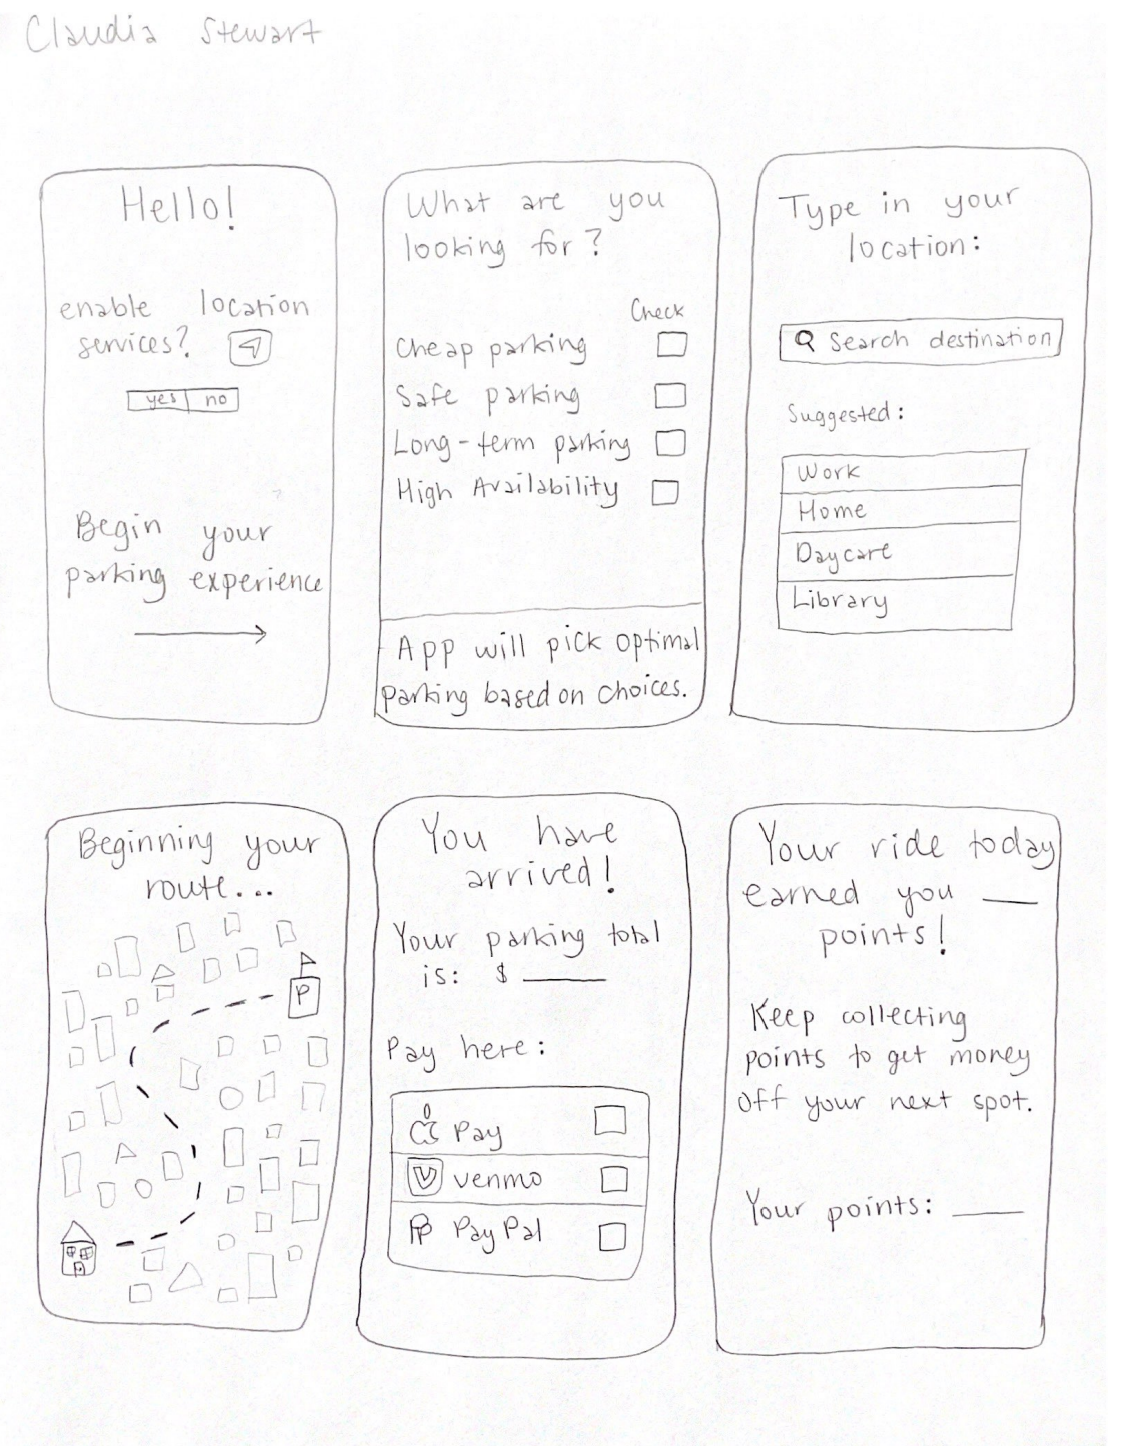 Claudia Stewart
Hello!
enable location
services?
yes no
Begin your
parking experience
What are you
looking for?
Check
Cheap parking
Safe parking
Long-term parking
High Availability
App will pick optimal
parking based on choices.
Type in your
location:
Search destination
Suggested:
Work
Home
Daycare
Library
Beginning your
route...
P
You have
arrived!
Your parking total
is: $
Pay here:
Pay
V venmo
PP PayPal
Your ride today
earned you
points!
Keep collecting
points to get money
off your next spot.
Your points: